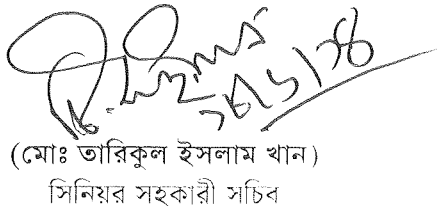 (মোঃ তারিকুল ইসলাম খান)
সিনিয়র সহকারী সচিব